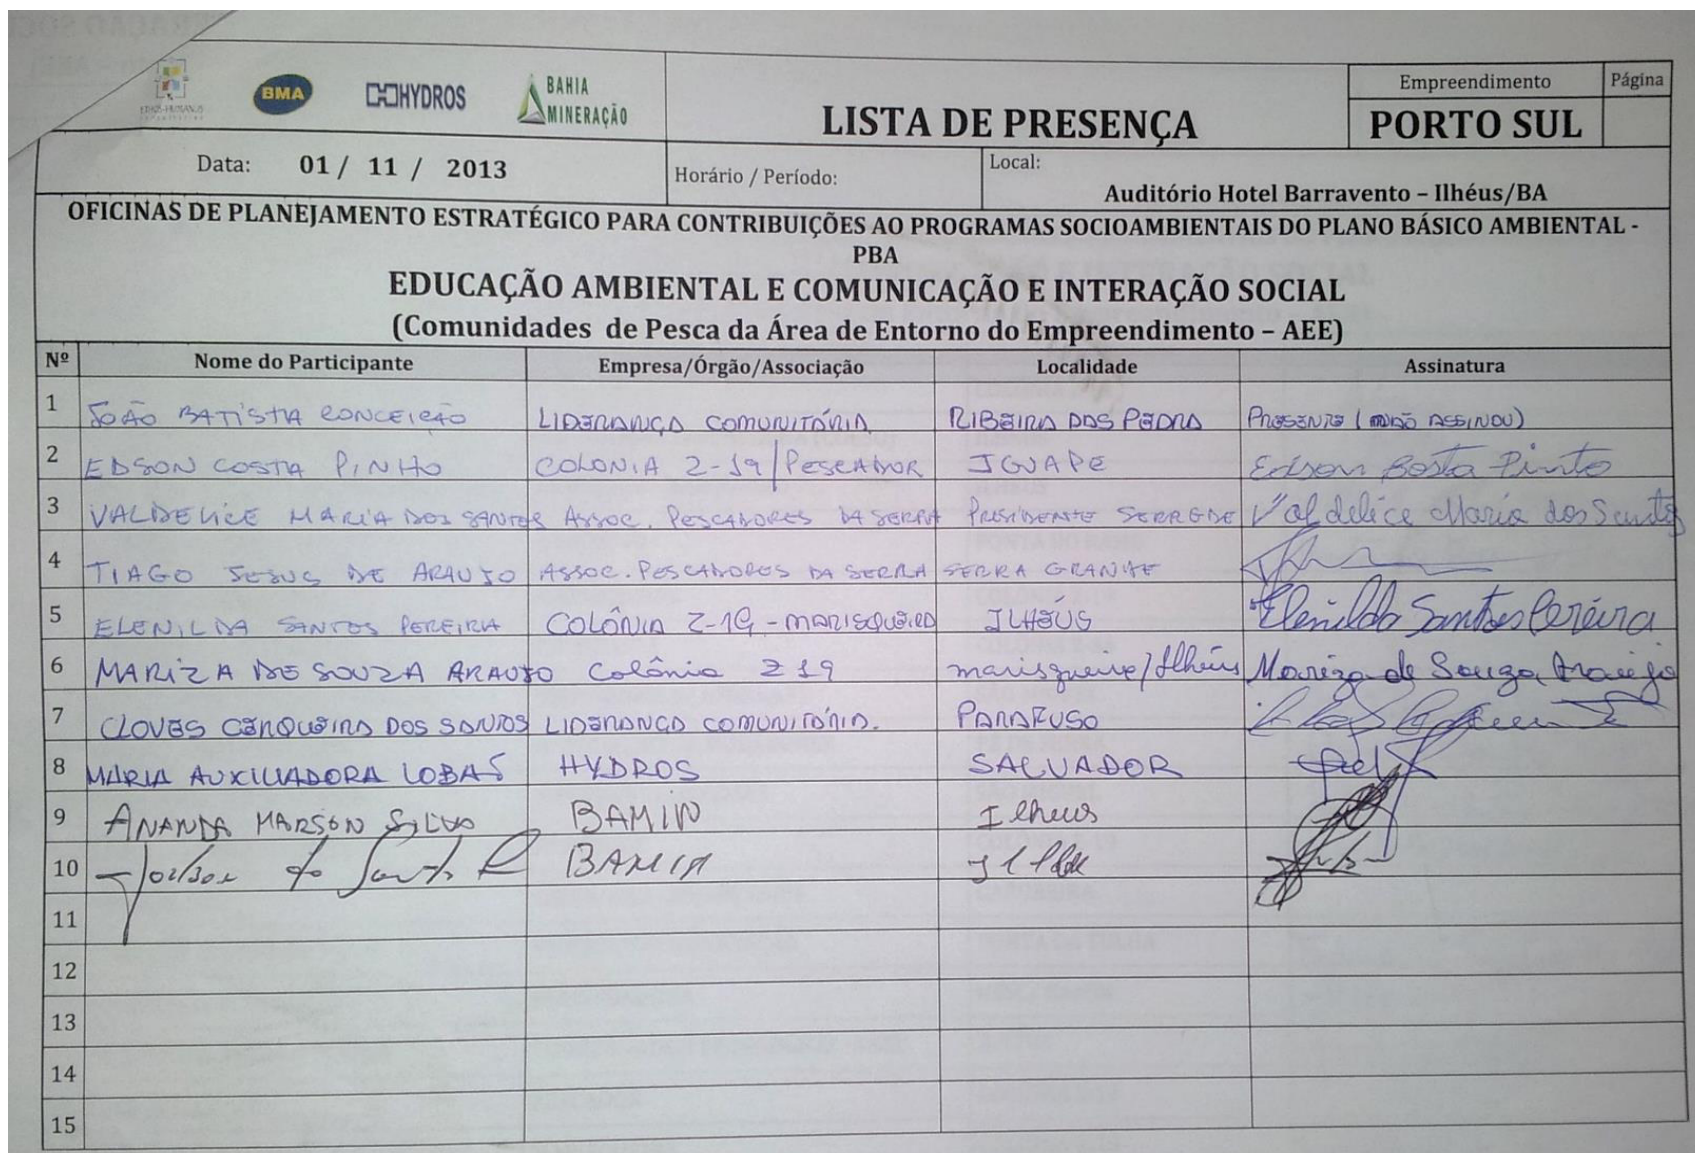 BMA
HYDROS
BAHIA
MINERAÇÃO
LISTA DE PRESENÇA
Empreendimento
PORTO SUL
Página
Data: 01 / 11 / 2013
Horário / Período:
Local:
Auditório Hotel Barravento – Ilhéus/BA
OFICINAS DE PLANEJAMENTO ESTRATÉGICO PARA CONTRIBUIÇÕES AO PROGRAMAS SOCIOAMBIENTAIS DO PLANO BÁSICO AMBIENTAL -
PBA
EDUCAÇÃO AMBIENTAL E COMUNICAÇÃO E INTERAÇÃO SOCIAL
(Comunidades de Pesca da Área de Entorno do Empreendimento – AEE)
Nº Nome do Participante Empresa/Órgão/Associação Localidade Assinatura
1 JOÃO BATISTA CONCEIÇÃO LIDERANÇA COMUNITÁRIA RIBEIRA DAS PEDRA PRESENTE (NÃO ASSINOU)
2 EDSON COSTA PINHO COLONIA Z-19/PESCADOR IGUAPE Edson Costa Pinto
3 VALDELICE MARIA DOS SANTOS ASSOC. PESCADORES DA SERRA PRESIDENTE SERRGDE Valdelice Maria dos Santos
4 TIAGO JESUS DE ARAUJO ASSOC. PESCADORES DA SERRA SERRA GRANDE
5 ELENILDA SANTOS PEREIRA COLÔNIA Z-19 - MARISQUEIRA ILHÉUS Elenilda Santos Pereira
6 MARIZA DE SOUZA ARAUJO Colônia Z 19 marisqueira/Ilhéus Mariza de Souza Araujo
7 CLOVES CERQUEIRA DOS SANTOS LIDERANÇA COMUNITÁRIA. PARAFUSO
8 MARIA AUXILIADORA LOBÃO HYDROS SALVADOR
9 ANANDA MARSON SILVA BAMIN Ilheus
10 BAMIN
11
12
13
14
15